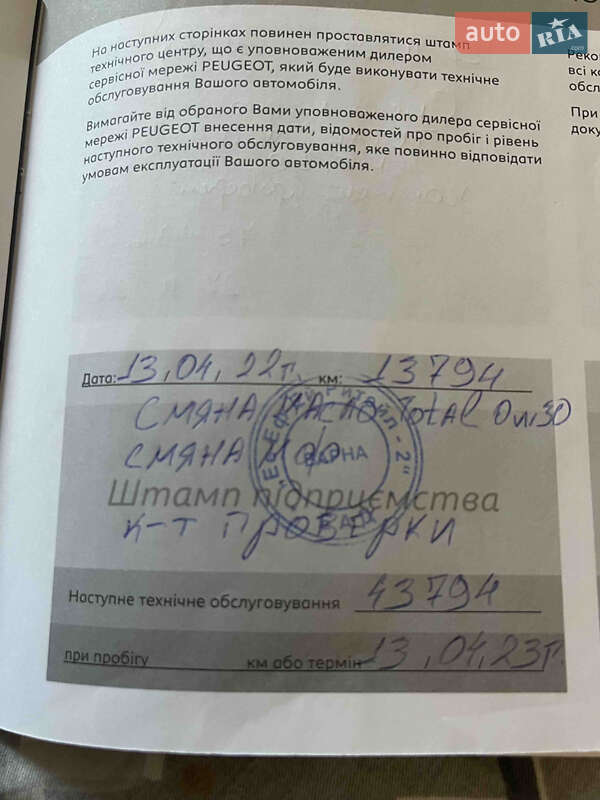 auto RIA.com
На наступних сторінках повинен проставлятися штамп
технічного центру, що є уповноваженим дилером
сервісної мережі PEUGEOT, який буде виконувати технічне
обслуговування Вашого автомобіля.
Вимагайте від обраного Вами уповноваженого дилера сервісної
мережі PEUGEOT внесення дати, відомостей про пробіг і рівень
наступного технічного обслуговування, яке повинно відповідати
умовам експлуатації Вашого автомобіля.
Дата: 13,04,22г. км: 13794
СМЯНА МАСЛО Total 0w30
СМЯНА
ВАРНА
Штамп підприємства
К-Т ПРОВЕРКИ
Наступне технічне обслуговування 43794
при пробігу км або термін 13,04,23г.
Реко
всі к
обсл
При
доку